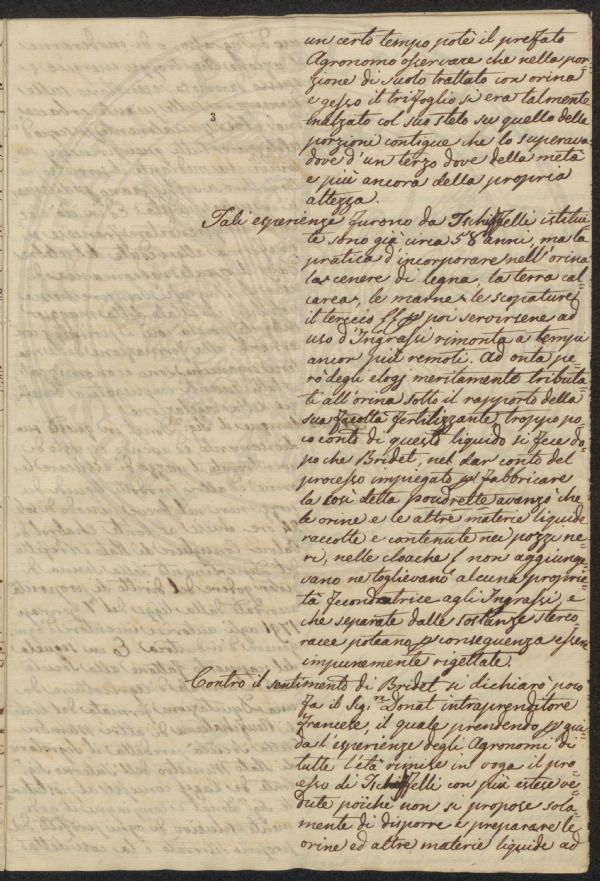 un certo tempo potè il prefato
Agronomo osservare che nella por=
zione di suolo trattato con orina
e gesso il trifoglio si era talmente
3
inalzato col suo stelo su quello delle
porzioni contigue che lo superava
dove d'un terzo dove della metà
e più ancora della propria
altezza.
Tali esperienze furono da Tschiffelli istitui=
te sono già circa 58 anni, ma la
pratica d'incorporare nell'orina
la cenere di legna, la terra cal=
carea, le marne, le scopature,
il terccio poi servirsene ad
uso d'Ingrassi rimonta a tempi
ancor più remoti. Ad onta pe=
rò degli elogj meritamente tributa=
ti all'orina sotto il rapporto della
sua facoltà fertilizzante troppo po=
co conto di questo liquido si fece do=
po che Bridet, nel dar conto del
processo impiegato p fabbricare
la così detta poudrette avanzò che
le orine e le altre materie liquide
raccolte e contenute nei pozzi ne=
ri, nelle cloache non aggiunge=
vano ne toglievano alcuna proprie=
tà fecondatrice agli Ingrassi, e
che separate dalle sostanze sterco=
racee poteano p conseguenza essere
impunemente rigettate.
Contro il sentimento di Bridet si dichiarò poco
fa il Sigr Donat intraprenditore
francese, il quale prendendo p gui=
da l'esperienze degli Agronomi di
tutte l'età rimise in voga il pro=
cesso di Tschiffelli con più estese ve=
dute poichè non si propose sola=
mente di disporre e preparare le
orine ed altre materie liquide ad